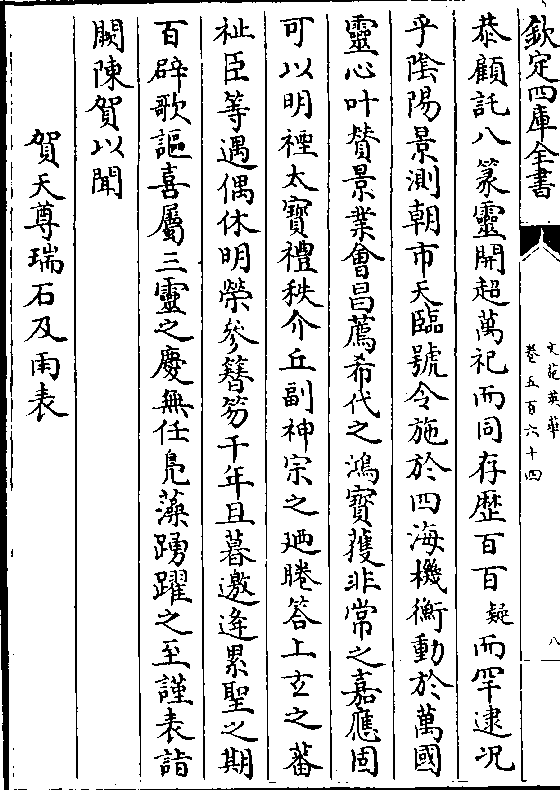 欽定四庫全書
文苑英華
卷五百六十四
八
恭顧託八篆靈開超萬祀而同存歴百百疑而罕逮况
乎陰陽景測朝市天臨號令施於四海機衡動於萬國
靈心叶贊景業會昌薦希代之鴻寳蒦非常之嘉應固
可以明禋太寳禮秩介丘副神宗之廼睠答上玄之蕃
祉臣等遇偶休明榮參簪笏千年旦暮邀逢累聖之期
百辟歌謳喜屬三靈之慶無任鳧藻踴躍之至謹表詣
闕陳賀以聞
賀天尊瑞石及雨表